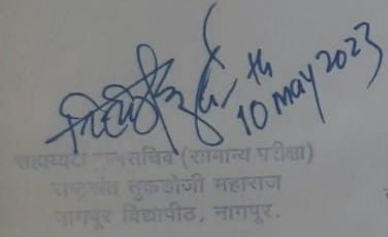 10th may 2023
सहाय्यक सचिव (सामान्य परीक्षा)
राष्ट्रसंत तुकडोजी महाराज
नागपूर विद्यापीठ, नागपूर.